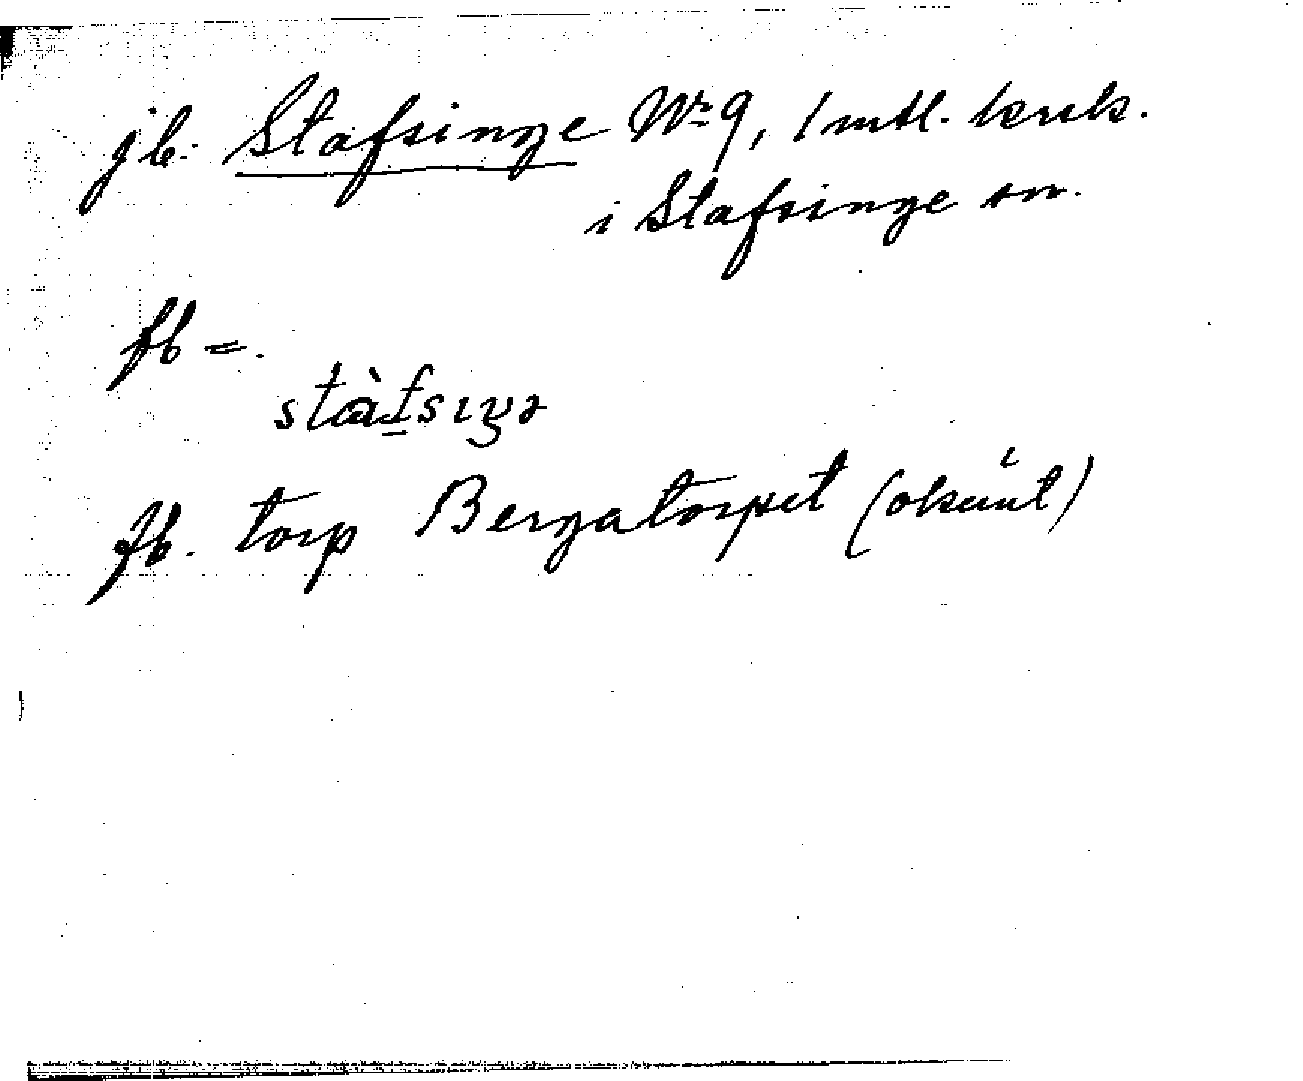 jb. Stafsinge Nr 9, 1 mtl. krsk.
i Stafsinge sn.
fb =.
stàfsıŋə
fb. torp Bergatorpet (okänt)